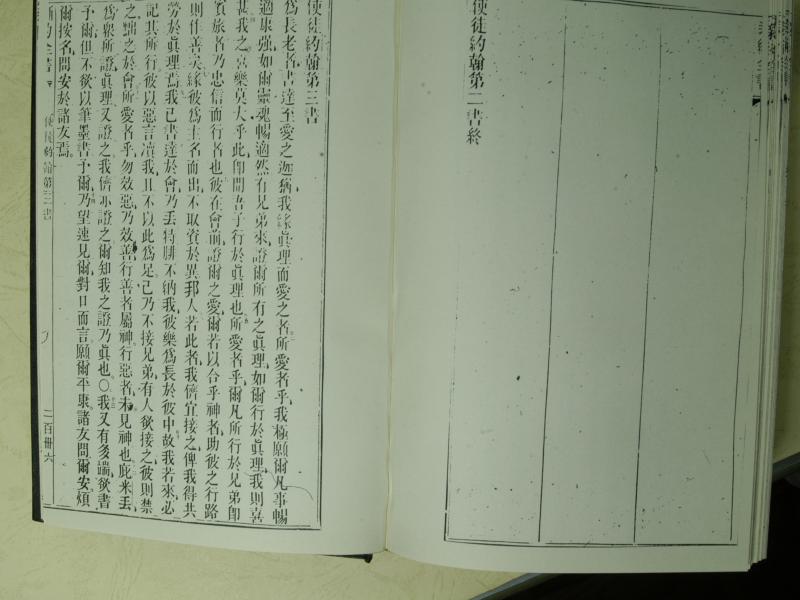 使徒約翰第二書終
使徒約翰第三書
爲長老者書達至愛之迦猶我緣眞理而愛之者所愛者乎我極願爾凡事暢
適康强如爾靈魂暢適然有兄弟來證爾所有之眞理如爾行於眞理我則喜
甚我之喜樂莫大乎此卽聞吾子行於眞理也所愛者乎爾凡所行於兄弟卽
賓旅者乃忠信而行者也彼在會前證爾之愛爾若以合乎神者助彼之行路
則作善矣緣彼爲主名而出不取資於異邦人若此者我儕宜接之俾我得共
勞於眞理焉我已書達於會乃丢特腓不納我彼樂爲長於彼中故我若來必
記其所行彼以惡言凟我且不以此爲足己乃不接兄弟有人欲接之彼則禁
之黜之於會所愛者乎勿效惡乃效善行善者屬神行惡者未見神也庇米丢
爲衆所證眞理又證之我儕亦證之爾知我之證乃眞也○我又有多端欲書
予爾但不欲以筆墨書予爾乃望速見爾對口而言願爾平康諸友問爾安煩
爾按名問安於諸友焉
新約全書
使徒約翰第三書
二百卅六